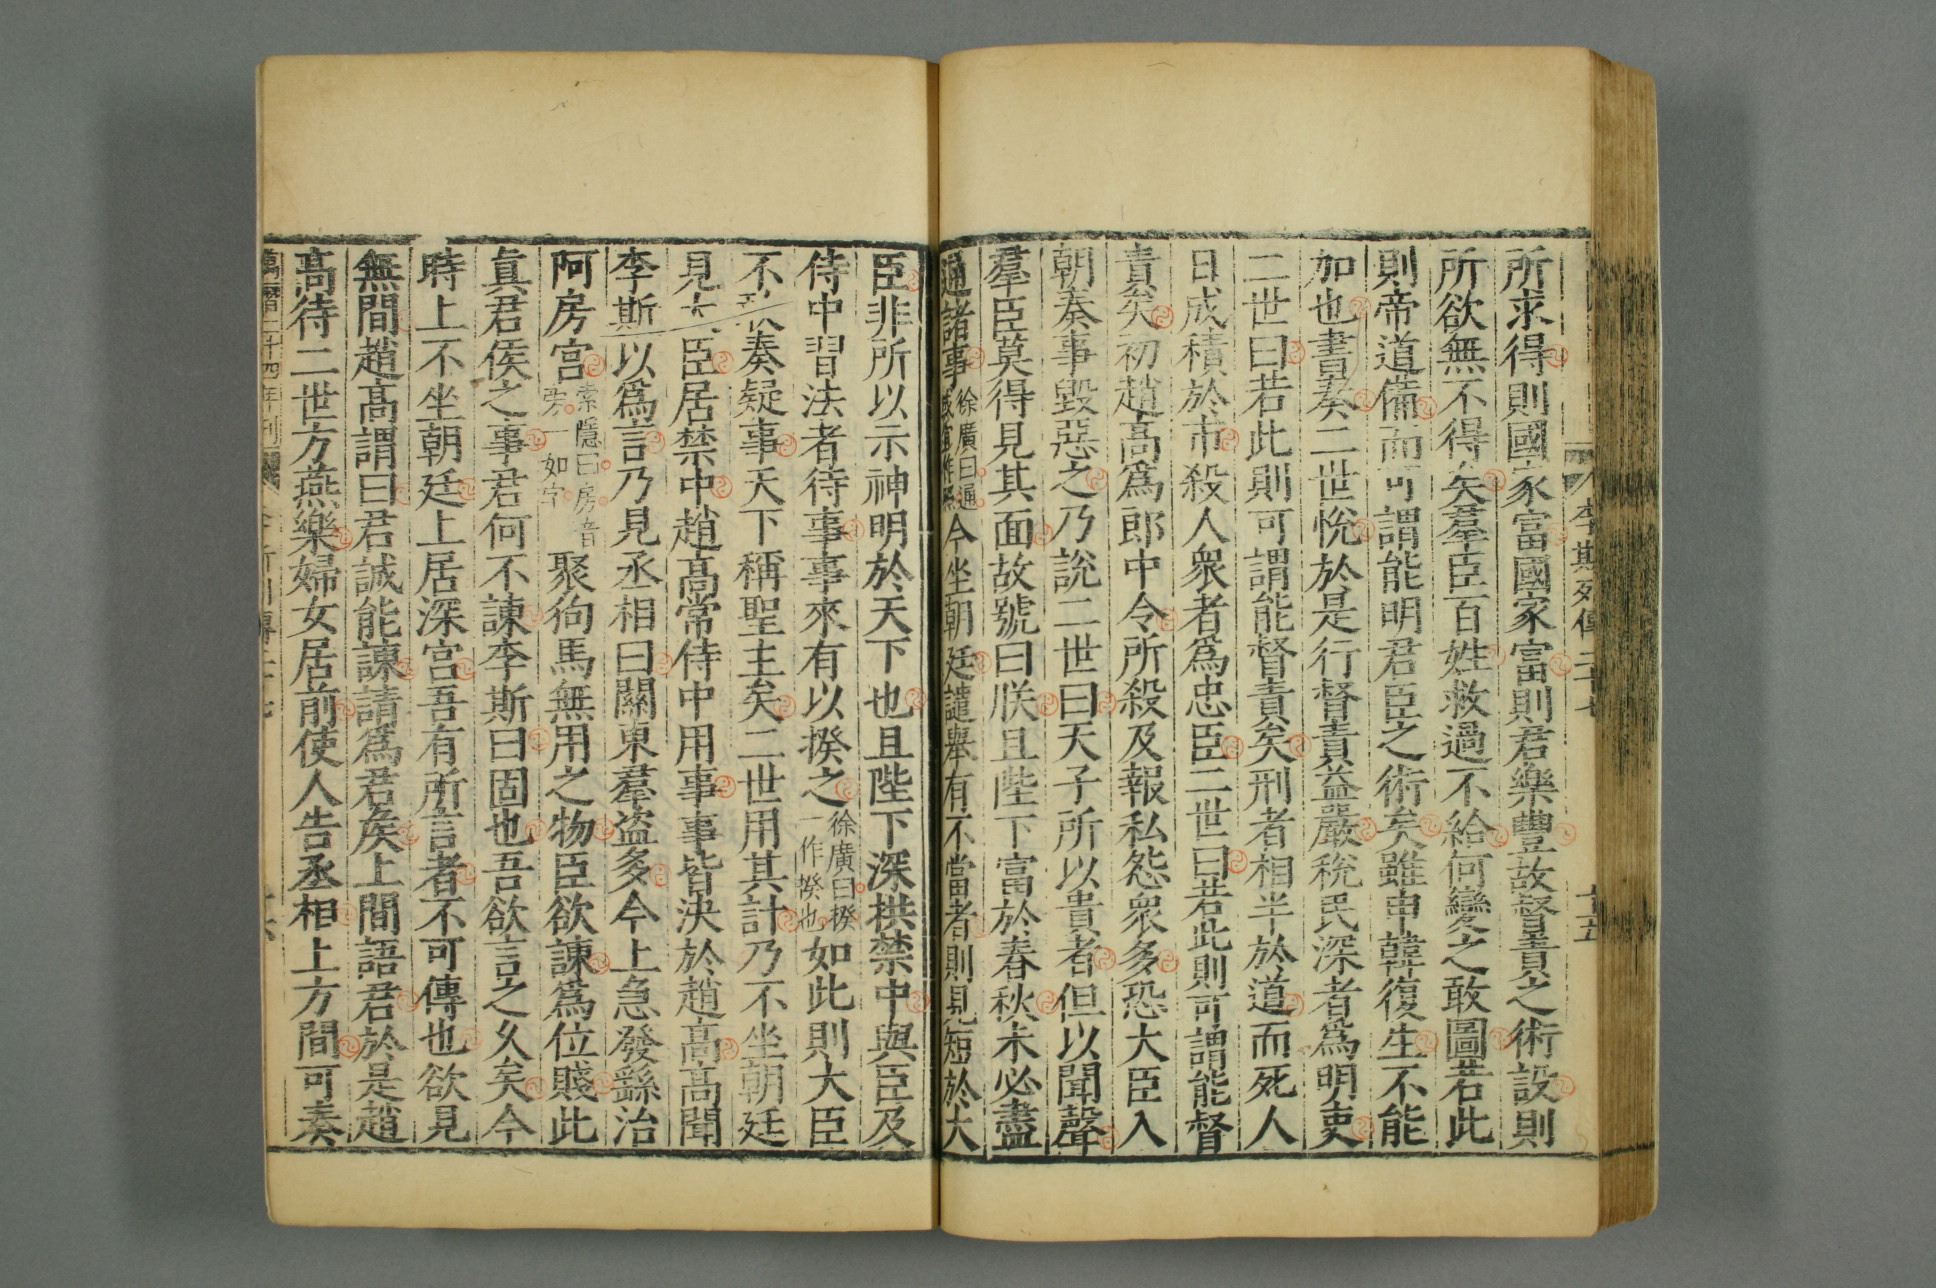 李斯列傳二十七
十五
所求得則國家富國家富則君樂豐故督責之術設則
所欲無不得矣羣臣百姓救過不給何變之敢圖若此
則帝道備而可謂能明君臣之術矣雖申韓復生不能
加也書奏二世悅於是行督責益嚴稅民深者爲明吏
二世曰若此則可謂能督責矣刑者相半於道而死人
日成積於市殺人衆者爲忠臣二世曰若此則可謂能督
責矣初趙高爲郎中令所殺及報私怨衆多恐大臣入
朝奏事毀惡之乃說二世曰天子所以貴者但以聞聲
羣臣莫得見其面故號曰朕且陛下富於春秋未必盡
通諸事
徐廣曰通
今坐朝廷譴舉有不當者則見短於大
臣非所以示神明於天下也且陛下深拱禁中與臣及
侍中習法者待事事來有以揆之
徐廣曰揆
一作撥也
如此則大臣
不奏疑事天下稱聖主矣二世用其計乃不坐朝廷
見大臣居禁中趙高常侍中用事事皆決於趙高高聞
李斯以爲言乃見丞相曰關東羣盜多今上急發繇治
阿房宮
索隱曰房音
旁一如字
聚狗馬無用之物臣欲諫爲位賤此
眞君侯之事君何不諫李斯曰固也吾欲言之久矣今
時上不坐朝廷上居深宮吾有所言者不可傳也欲見
無間趙高謂曰君誠能諫請爲君矦上間語君於是趙
高待二世方燕樂婦女居前使人告丞相上方間可奏
萬曆二十四年刊